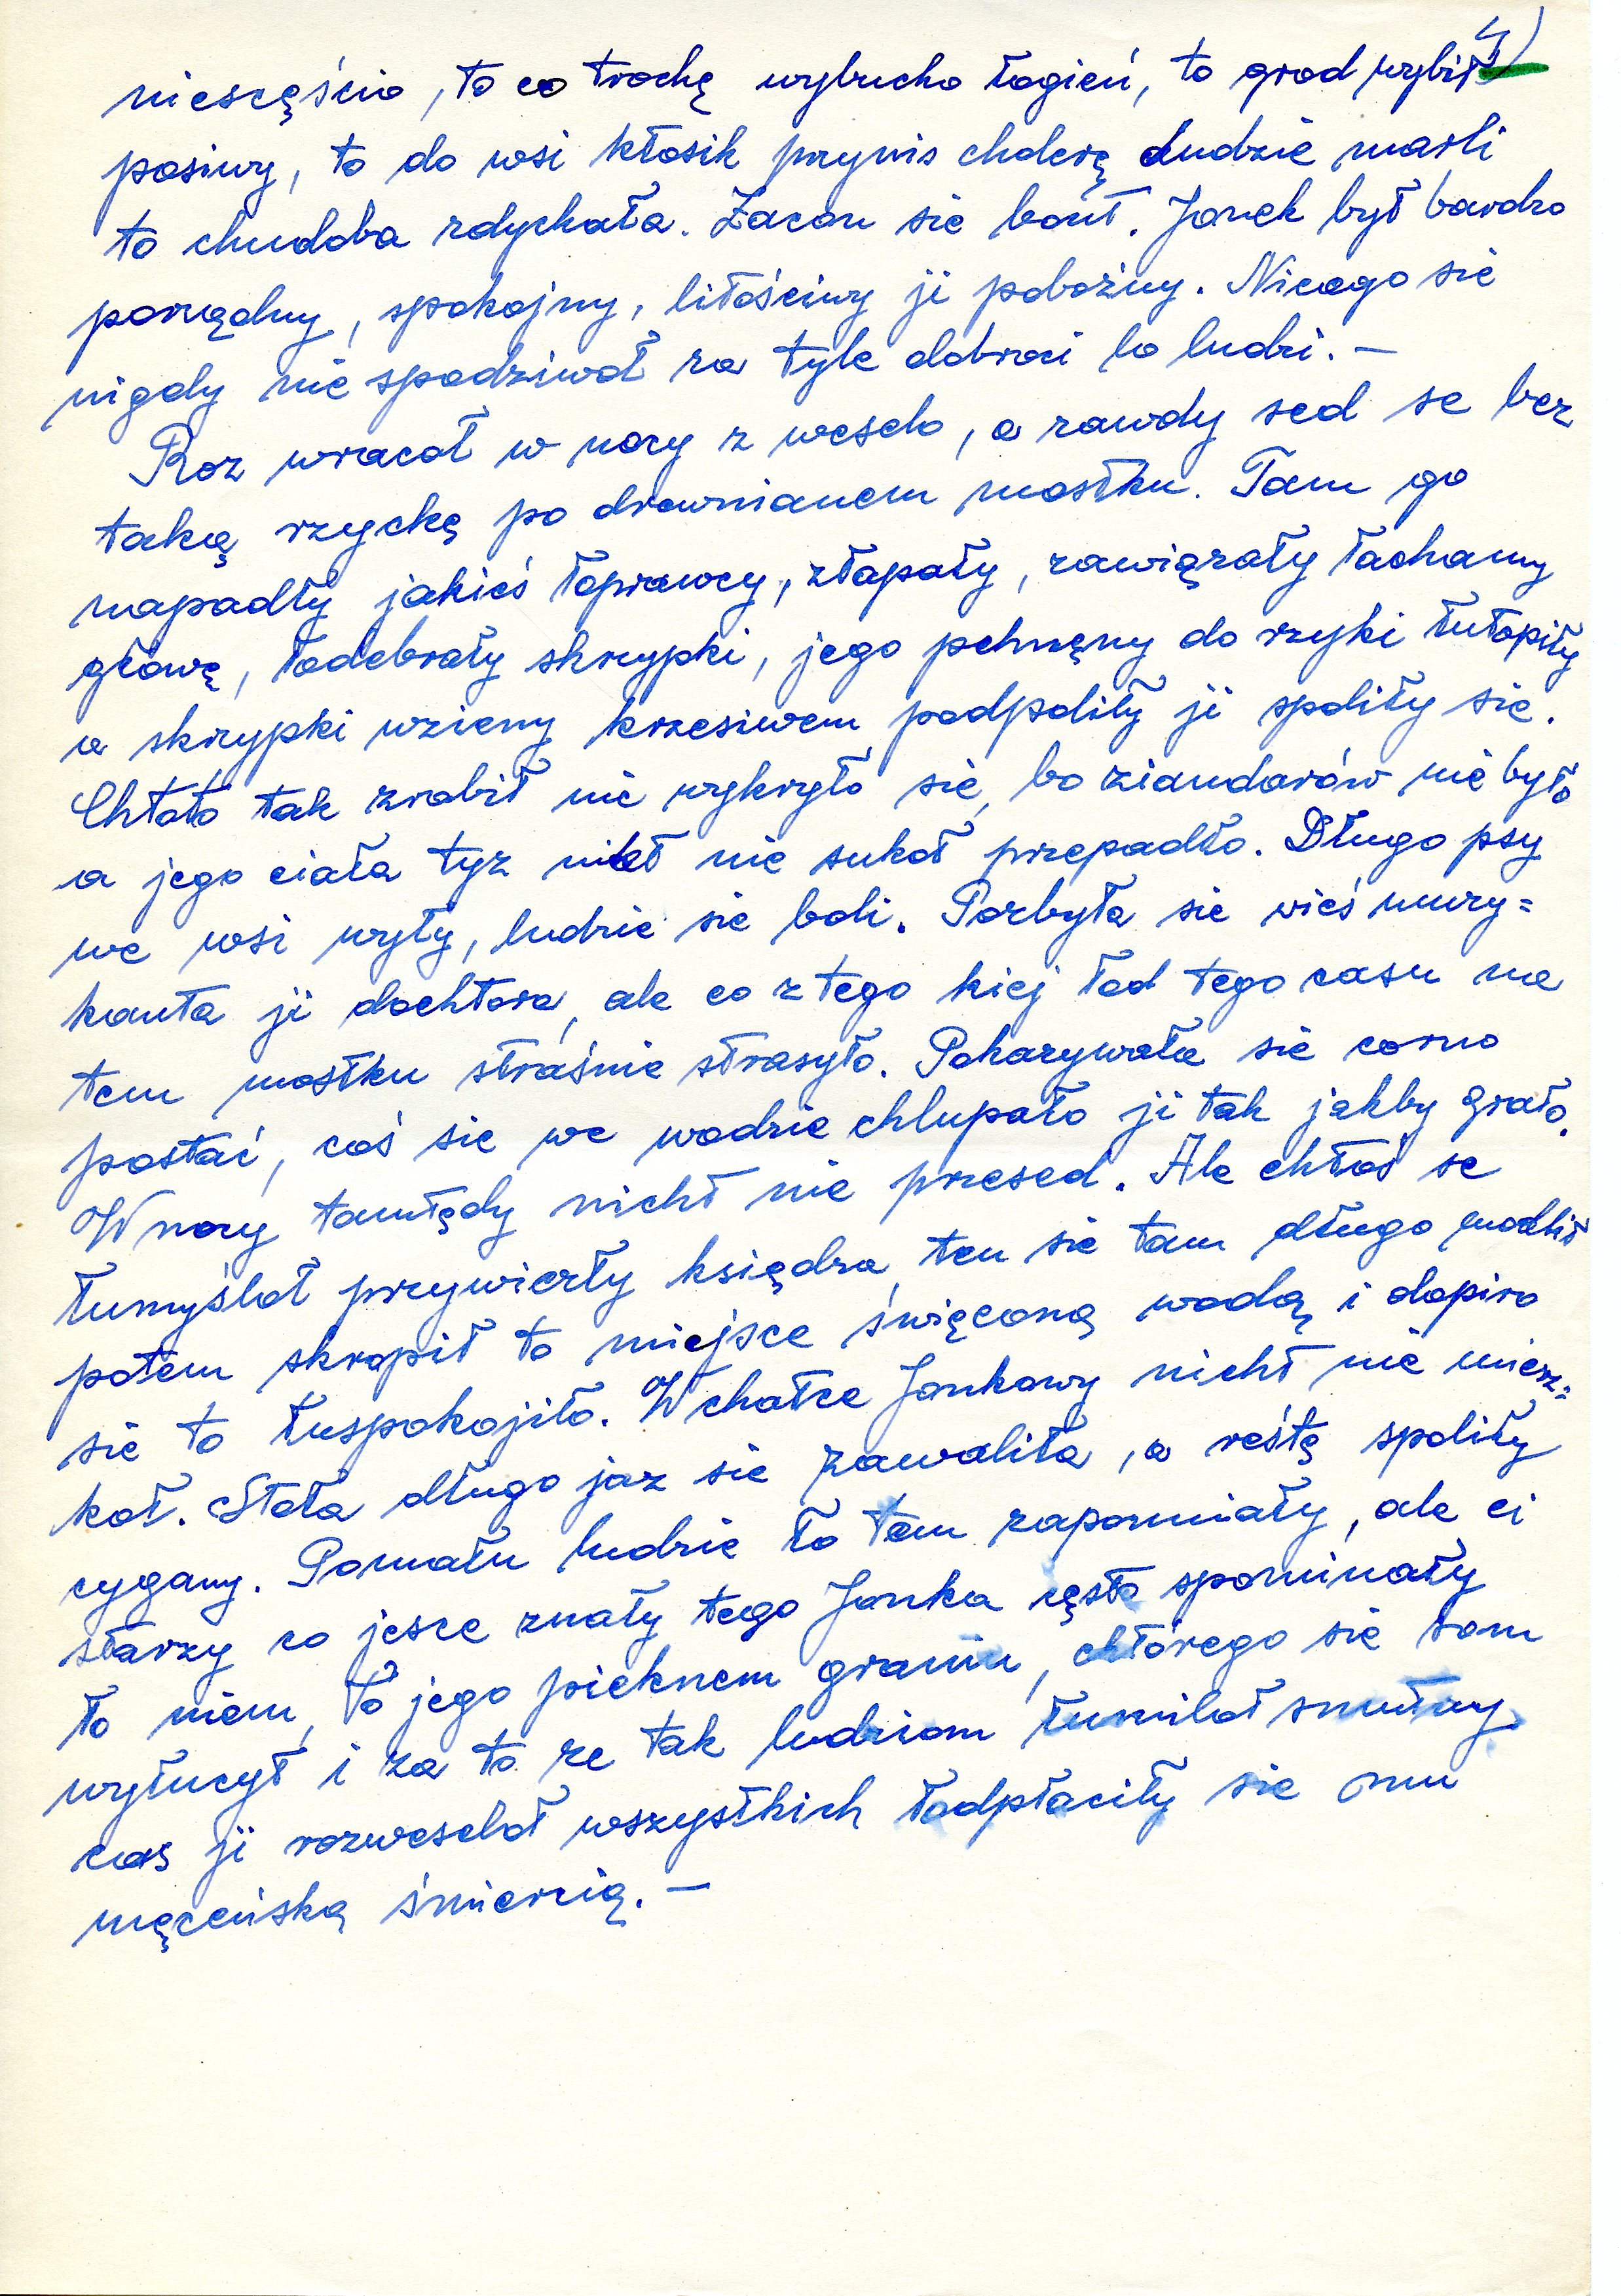 4)
niescęścio, to co trochę wybucho łogień, to grod wybił
posiwy, to do wsi ktosik prynis cholerę ludzie marli
to chudoba zdychała. Zacon sie boić. Jonek był bardzo
porządny, spokojny, litościwy ji pobożny. Nicego sie
nigdy nie spodziwoł za tyle dobroci lo ludzi. —
Roz wracoł w nocy z wesela, a zawdy sed se bez
taką rzyckę po drewnianem mostku. Tam go
napadły jakieś łoprawcy, złapały, zawiązały łachamy
głowę, łodebrały skrzypki, jego pchnęny do rzyki łutopiły
a skrzypki wzieny krzesiwem podpoliły ji spoliły sie.
Chtoto tak zrobił nie wykryło sie, bo ziandarów nie było
a jego ciała tyz nikt nie sukoł przepadło. Długo psy
we wsi wyły, ludzie sie boli. Pozbyła sie wieś muzy=
kanta ji dochtora, ale co z tego kiej łod tego casu na
tem mostku straśnie strasyło. Pokazywała sie corno
postać, coś sie we wodzie chlupało ji tak jakby grało.
W nocy tamtędy nicht nie przesed. Ale chtoś se
łumyśloł przywieźły księdza, ten sie tam długo modlił
potem skropił to miejsce święconą wodą i dopiro
sie to łuspokojiło. W chałce Jonkowy nicht nie miesz=
koł. Stała długo jaz sie zawaliła, a reśtę spoliły
cygany. Pomału ludzie ło tem zapomniały, ale ci
starzy co jesce znały tego Jonka cęsto spominały
ło niem, ło jego pieknem graniu, chtórego sie som
wyłucył i za to ze tak ludziom łumiloł smutny
cas ji rozweseloł wszystkich łodpłaciły sie mu
męceńską śmiercią. —